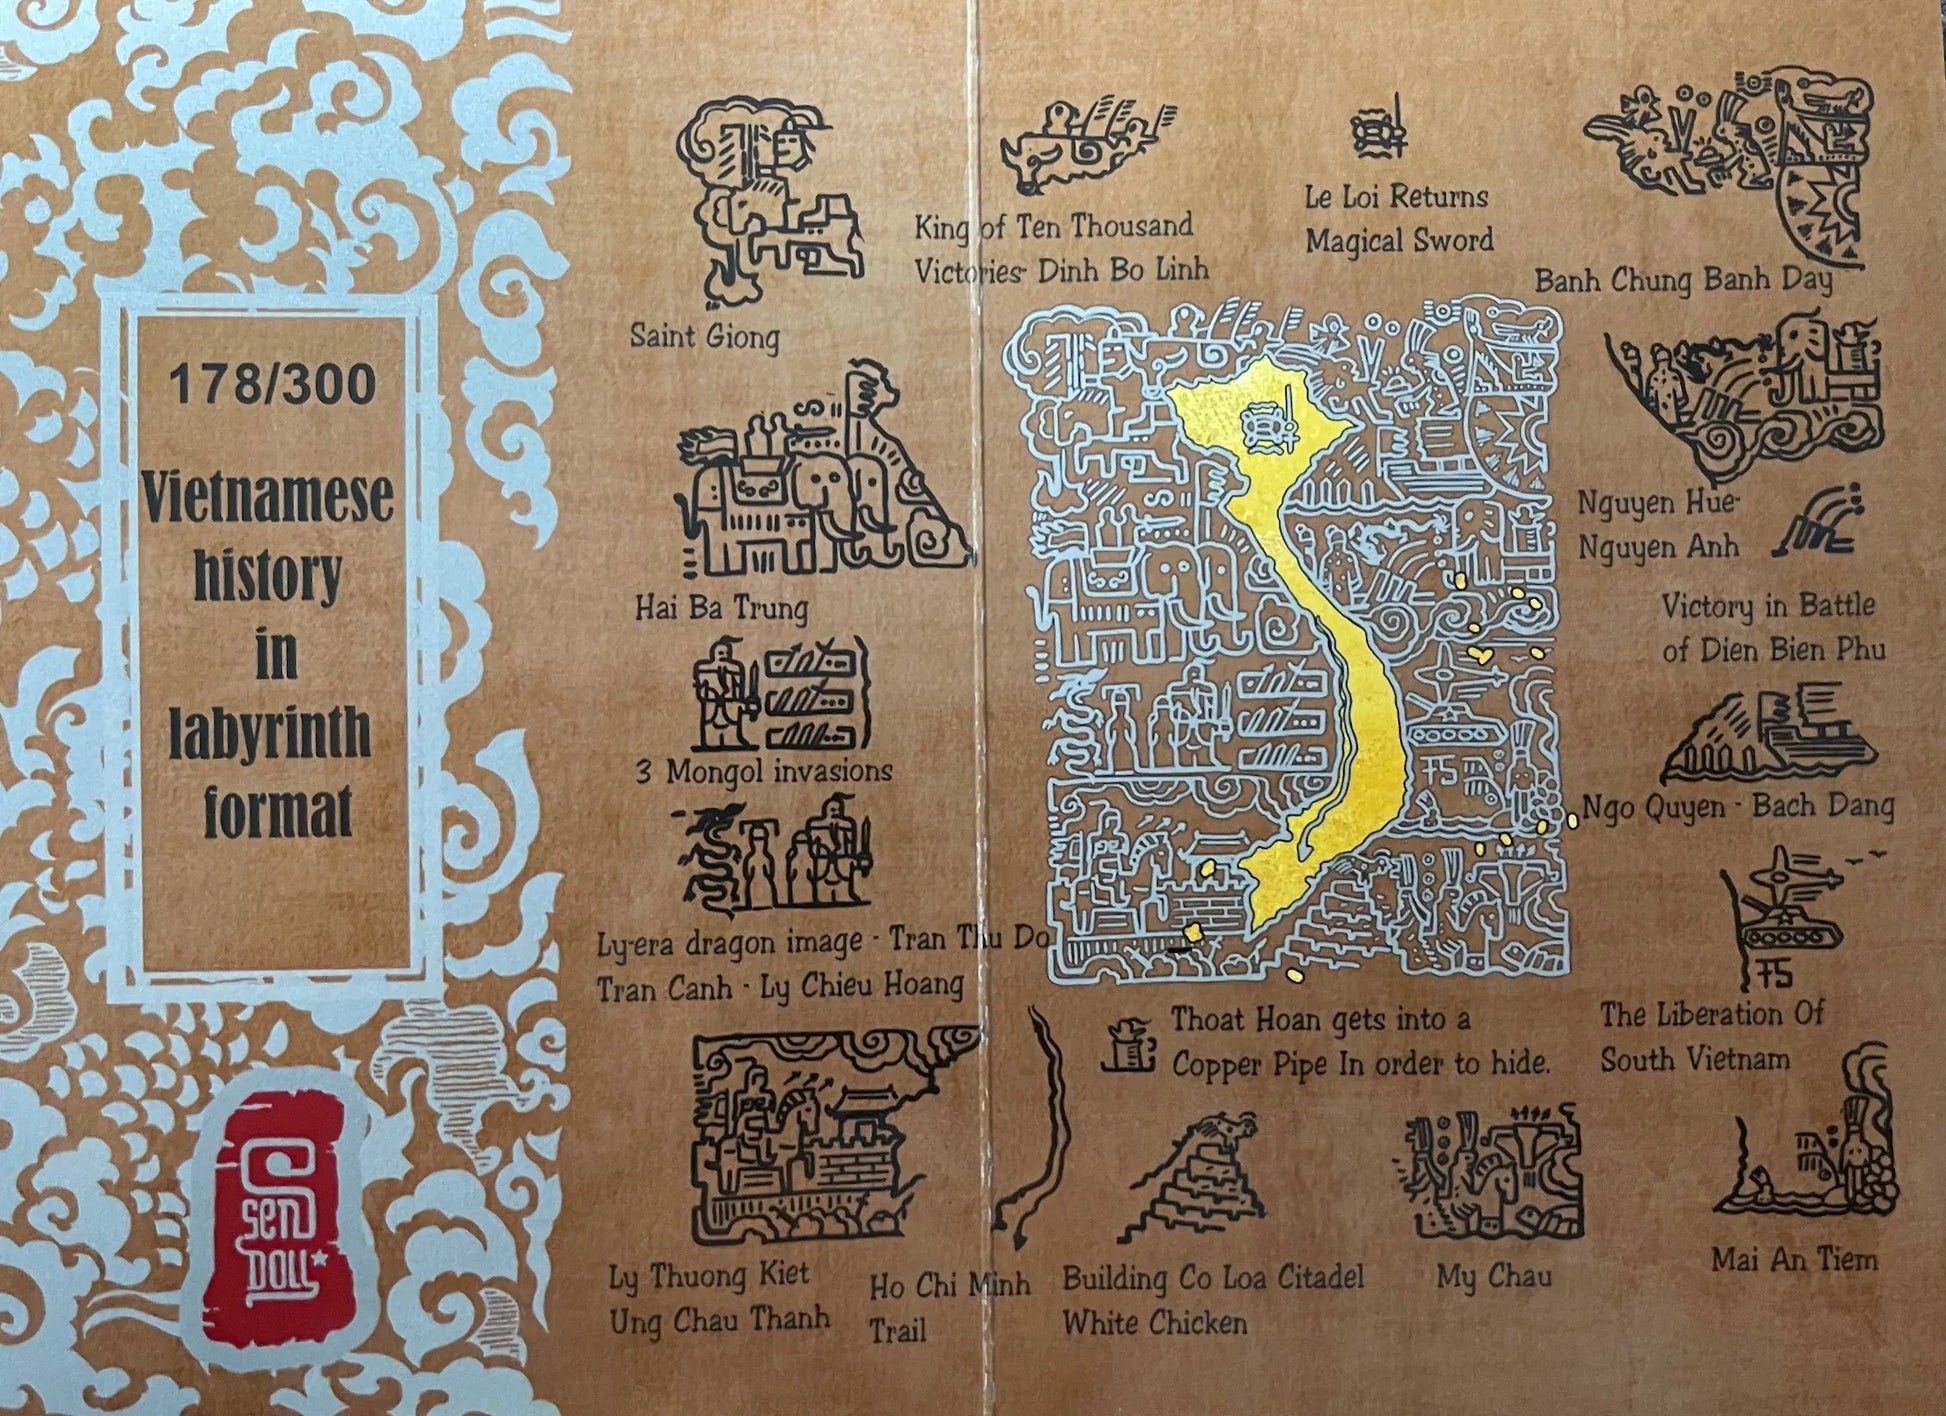 178/300
Vietnamese
history
in
labyrinth
format
Sen
Doll
Saint Giong
King of Ten Thousand
Victories- Dinh Bo Linh
Le Loi Returns
Magical Sword
Banh Chung Banh Day
Hai Ba Trung
Nguyen Hue-
Nguyen Anh
Victory in Battle
of Dien Bien Phu
3 Mongol invasions
75
Ngo Quyen - Bach Dang
Ly-era dragon image - Tran Thu Do
Tran Canh - Ly Chieu Hoang
75
The Liberation Of
South Vietnam
Thoat Hoan gets into a
Copper Pipe In order to hide.
Ly Thuong Kiet
Ung Chau Thanh
Ho Chi Minh
Trail
Building Co Loa Citadel
White Chicken
My Chau
Mai An Tiem